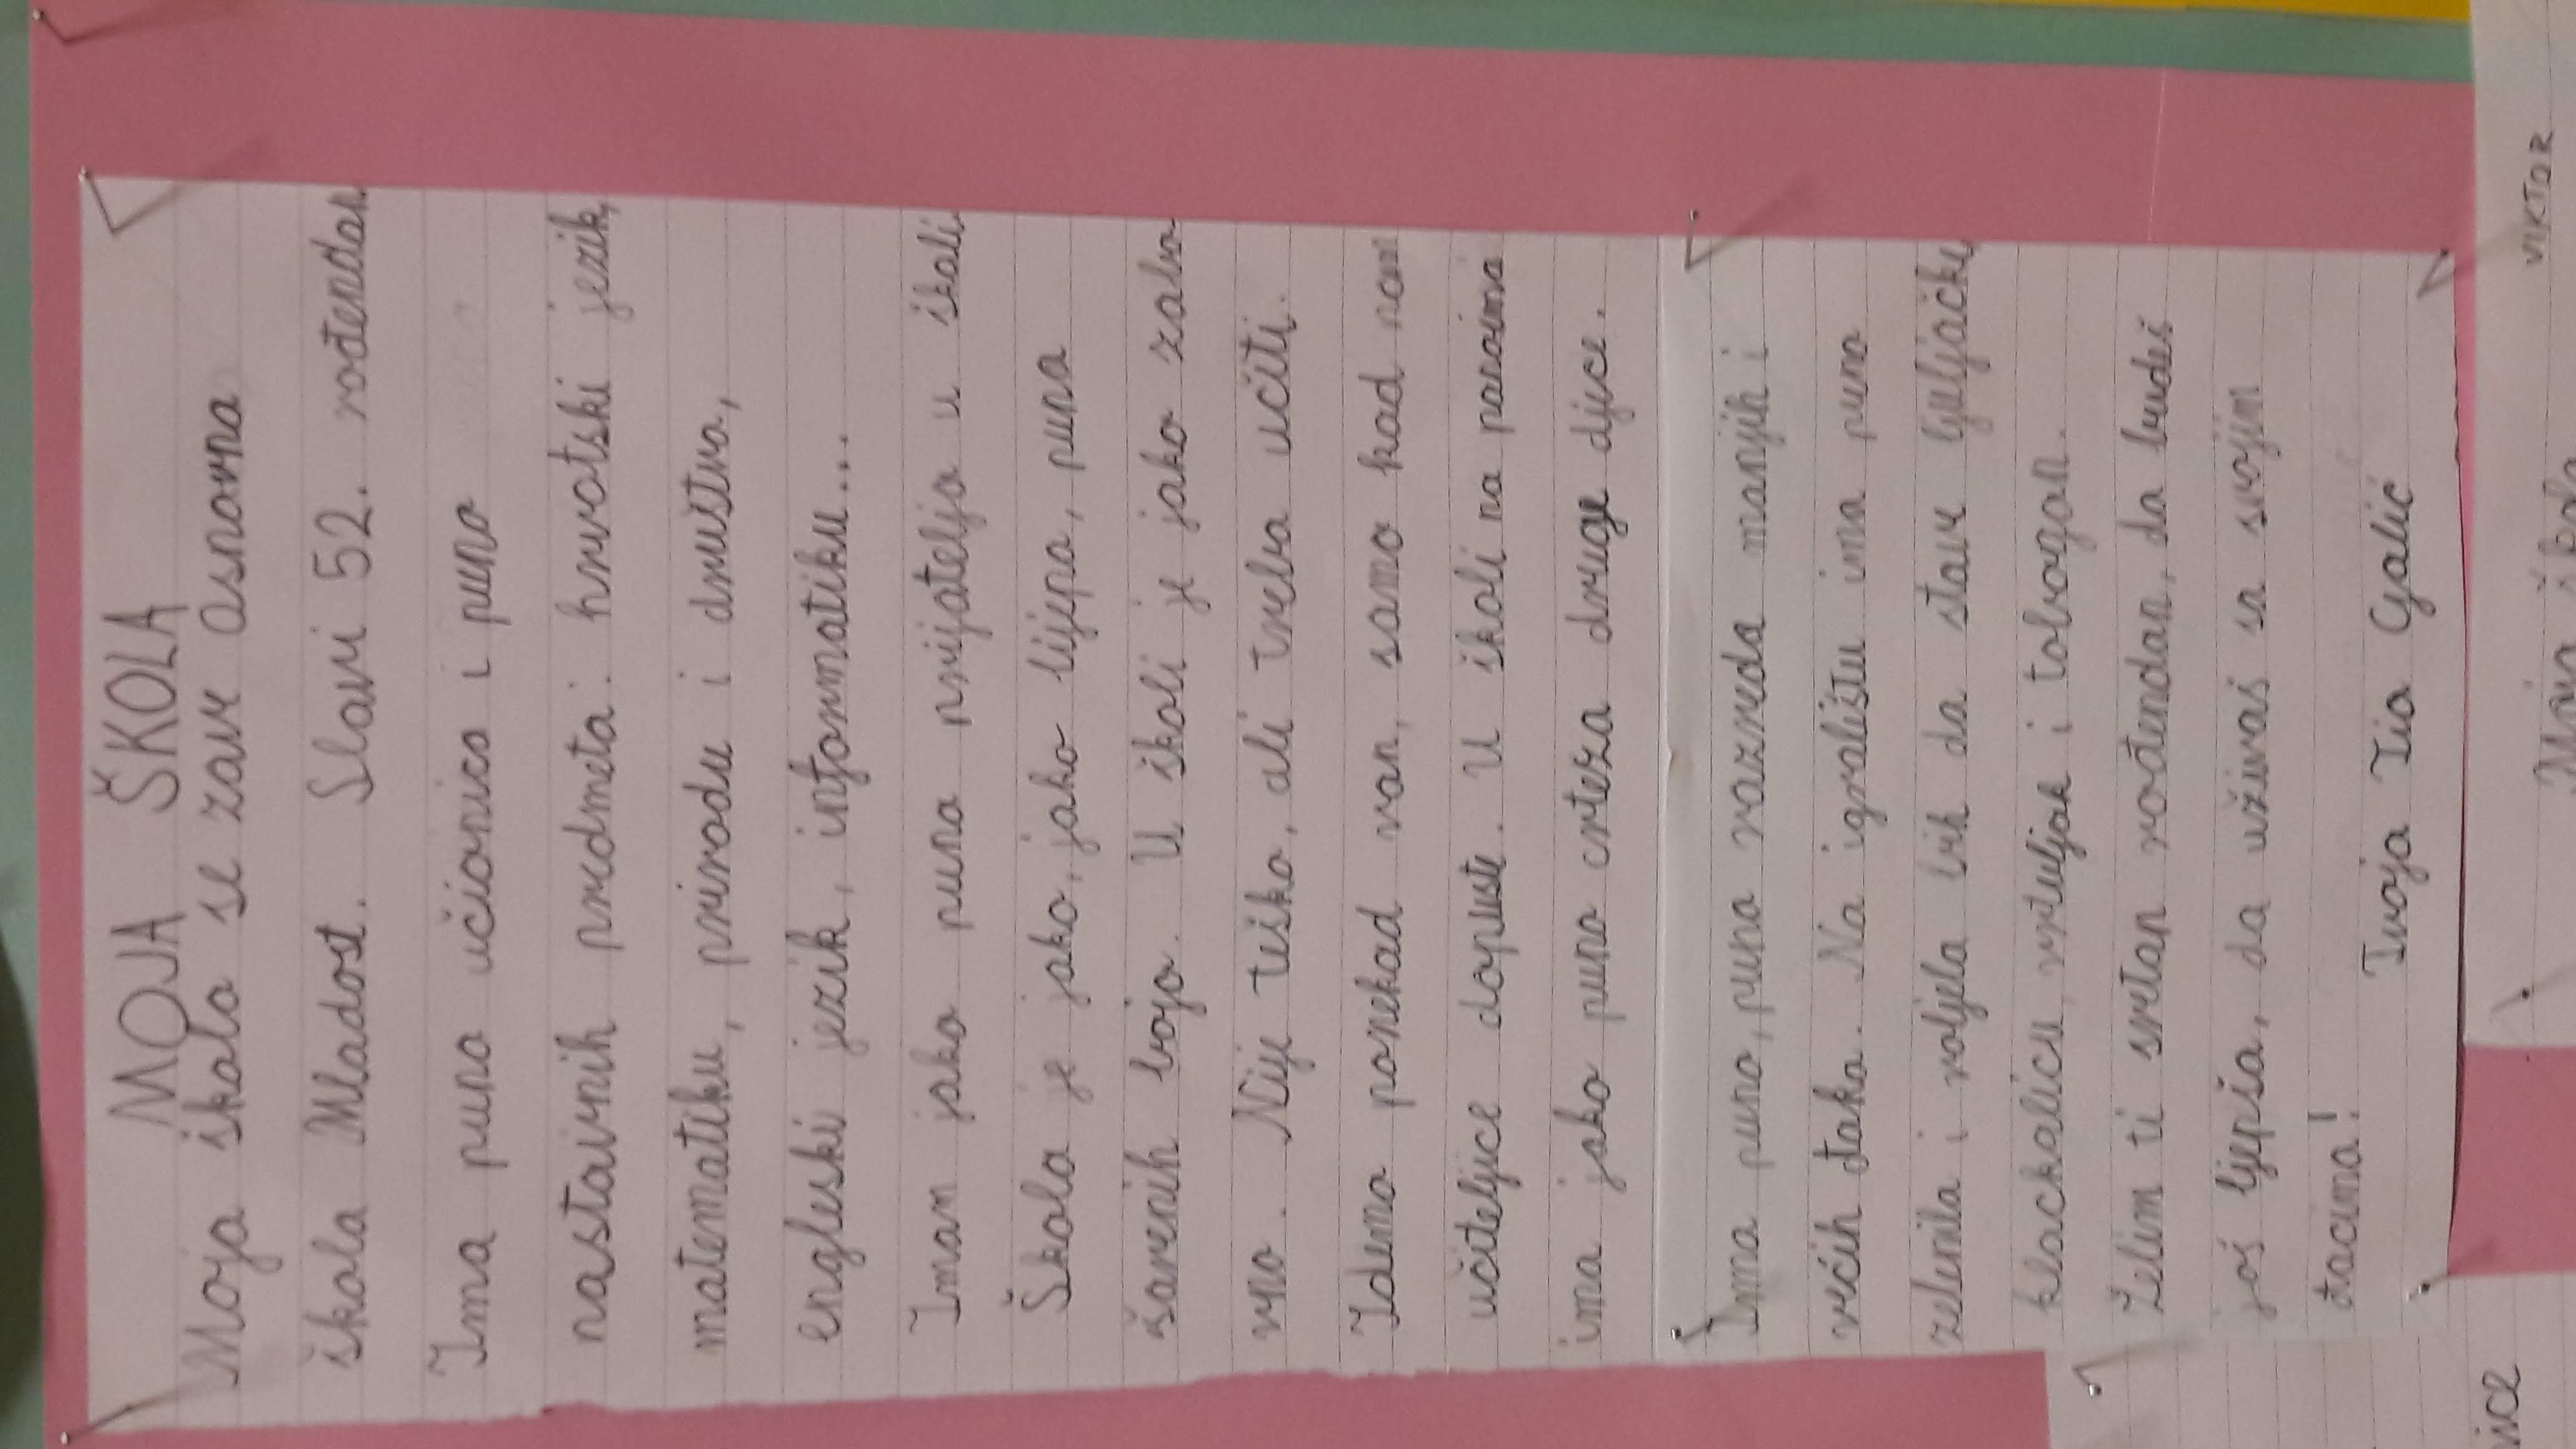 MOJA ŠKOLA
Moja škola se zove Osnovna
škola Mladost. Slavi 52. rođendan
Ima puno učionica i puno
nastavnih predmeta: hrvatski jezik,
matematiku, prirodu i društvo,
engleski jezik, informatiku...
Imam jako puno prijatelja u školi.
Škola je jako, jako lijepa, puna
šarenih boja. U školi je jako zaba
vno. Nije teško, ali treba učiti.
Idemo ponekad van, samo kad nam
učiteljice dopuste. U školi na panoima
ima jako puno crteža druge djece.
Ima puno, puno razreda manjih i
većih đaka. Na igralištu ima puno
zelenila i voljela bih da stave ljuljačke,
klackalicu, vrtuljak i tobogan.
Želim ti sretan rođendan, da budeš
još ljepša, da uživaš sa svojim
đacima!
Tvoja Tia Galić
VIKTOR
Moja škola
ice